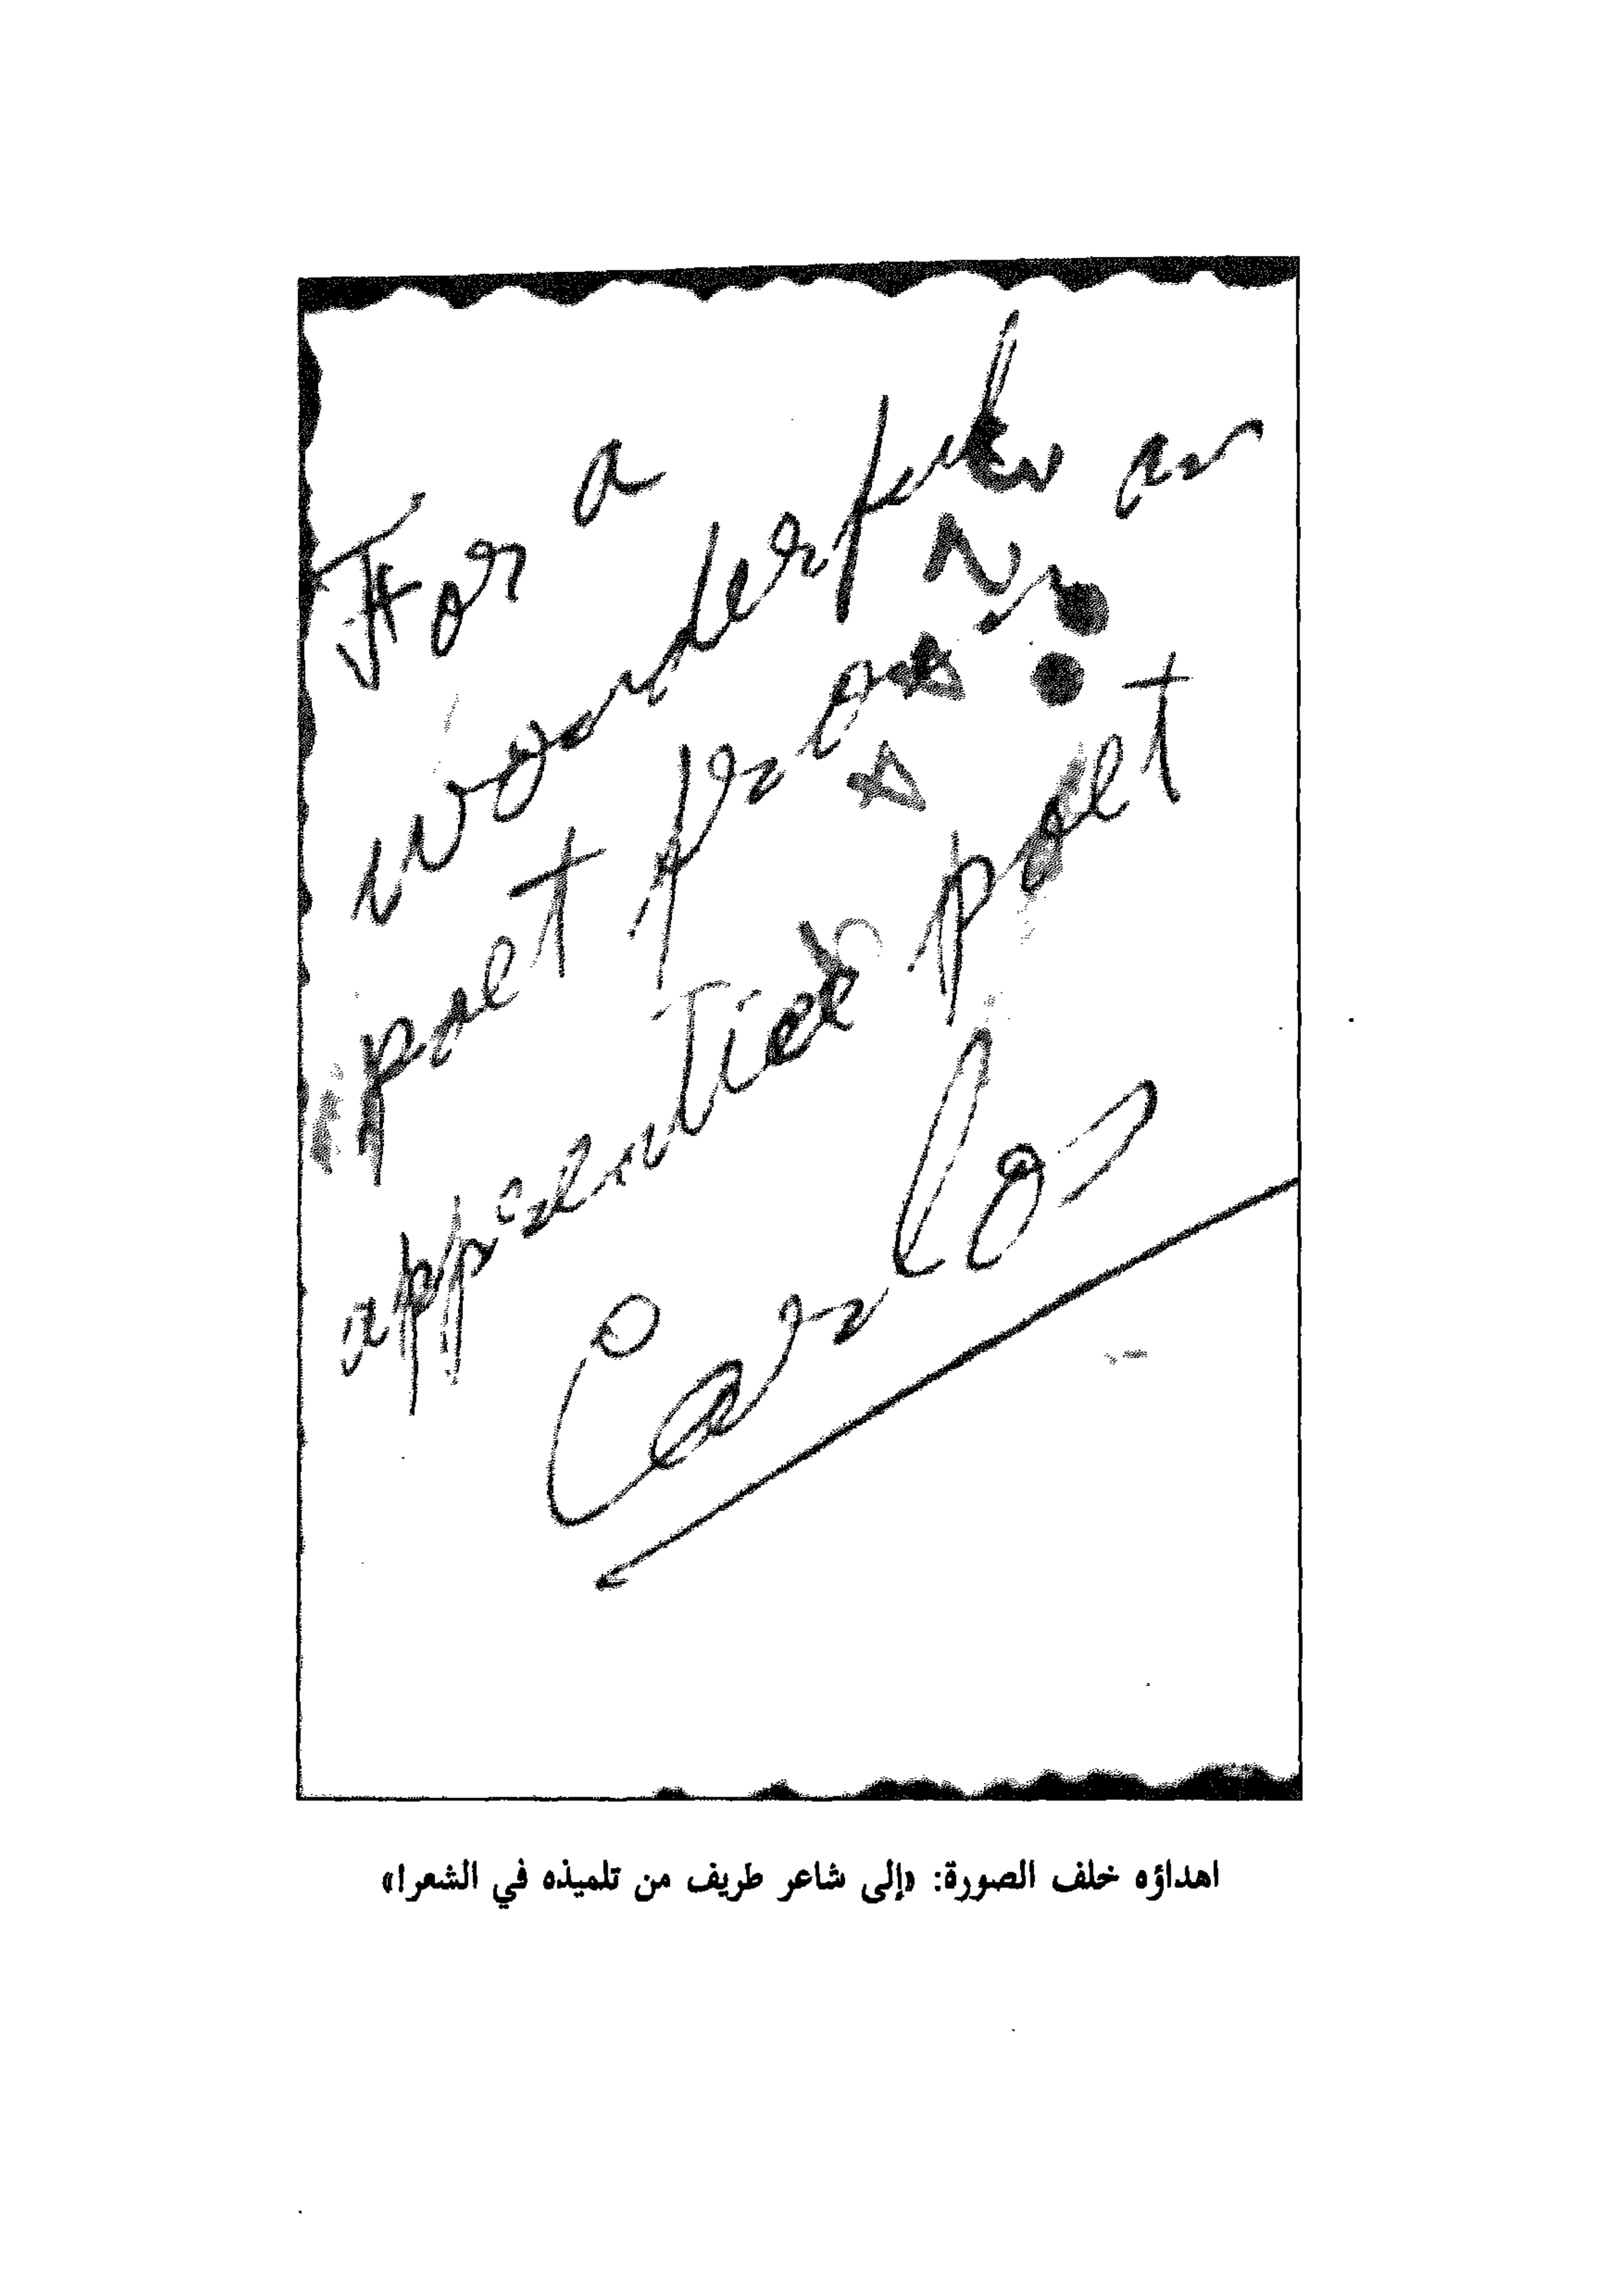 For a
wonderful
poet from an
apprentice poet
Carlos
اهداؤه خلف الصورة: «إلى شاعر طريف من تلميذه في الشعر!»